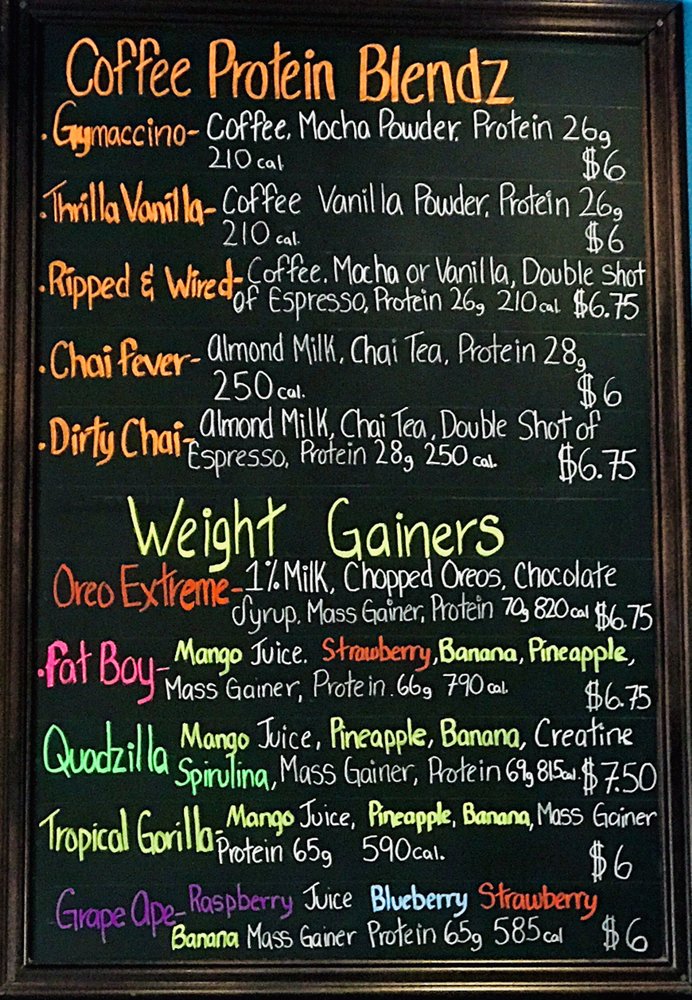 Coffee Protein Blendz
. Gymaccino- Coffee, Mocha Powder, Protein 26g
210 cal. $6
. Thrilla Vanilla- Coffee Vanilla Powder, Protein 26g
210 cal. $6
. Ripped & Wired- Coffee, Mocha or Vanilla, Double Shot
of Espresso, Protein 26g 210 cal $6.75
. Chai fever- Almond Milk, Chai Tea, Protein 28g
250 cal. $6
. Dirty Chai- Almond Milk, Chai Tea, Double Shot of
Espresso, Protein 28g 250 cal. $6.75
Weight Gainers
Oreo Extreme- 1% Milk, Chopped Oreos, Chocolate
Syrup, Mass Gainer, Protein 70g 820 cal $6.75
. Fat Boy- Mango Juice. Strawberry, Banana, Pineapple,
Mass Gainer, Protein 66g 790 cal. $6.75
Quadzilla Mango Juice, Pineapple, Banana, Creatine
Spirulina, Mass Gainer, Protein 69g 815cal. $7.50
Tropical Gorilla- Mango Juice, Pineapple, Banana, Mass Gainer
Protein 65g 590cal. $6
Grape Ape- Raspberry Juice Blueberry Strawberry
Banana Mass Gainer Protein 65g 585 cal $6